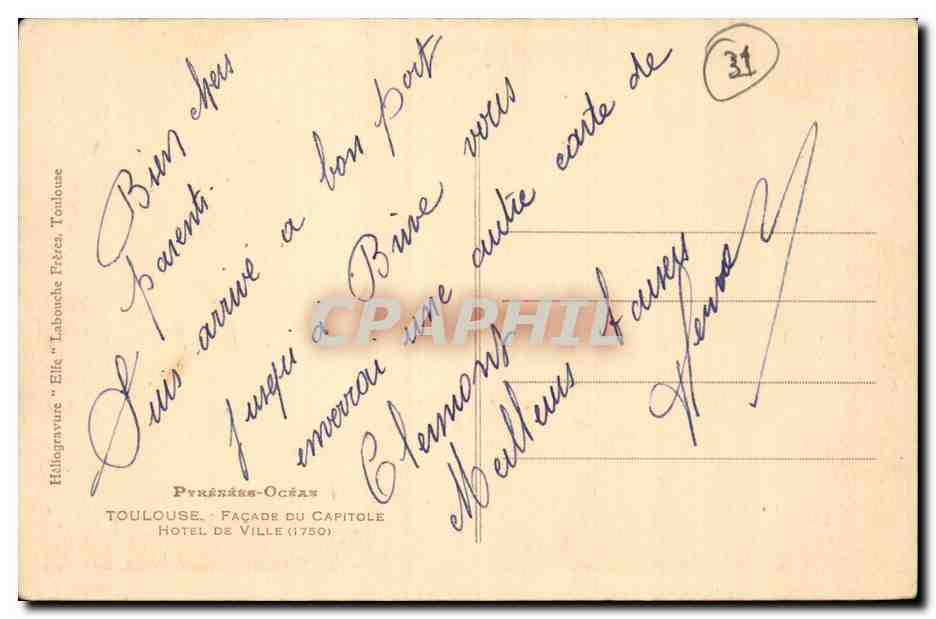 31
Bien chers
parents.
Suis arrivé a bon port
jusqu'a Brive vous
enverrai une autre carte de
Clermont
Meilleurs baisers
CPAPHIL
Héliogravure "Elfe" Labouche Frères, Toulouse
PYRÉNÉES-OCÉAN
TOULOUSE. - FAÇADE DU CAPITOLE
HOTEL DE VILLE (1750)